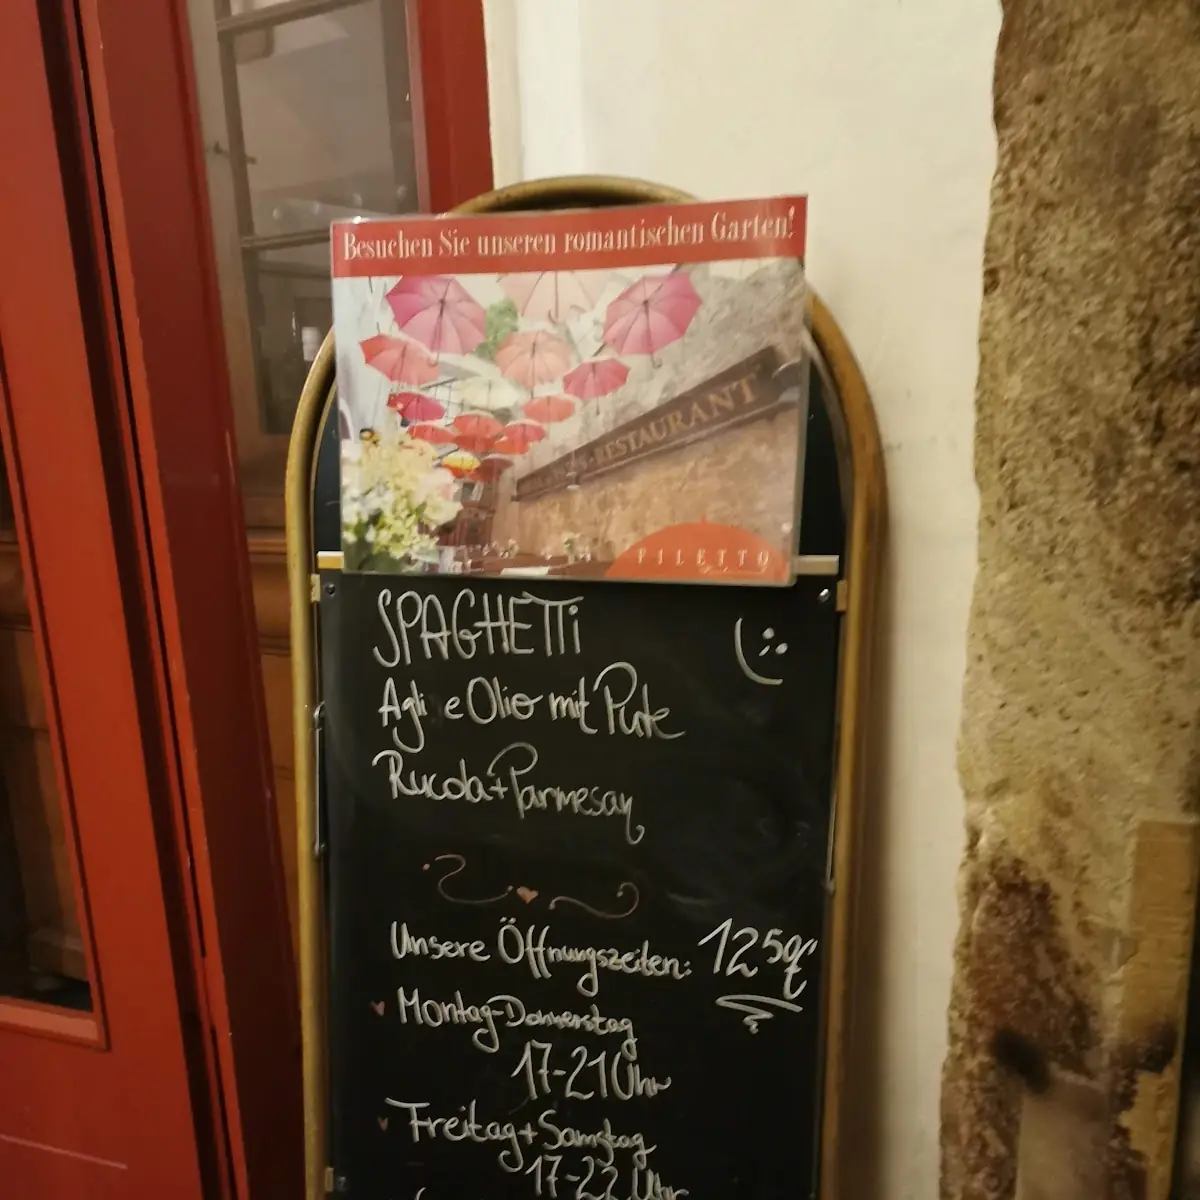 Besuchen Sie unseren romantischen Garten!
RESTAURANT
FILETTO
SPAGHETTi
Agli e Olio mit Pute
Rucola + Parmesan
Unsere Öffnungszeiten: 12 50€
Montag-Donnerstag
17-21 Uhr
Freitag + Samstag
17-22 Uhr